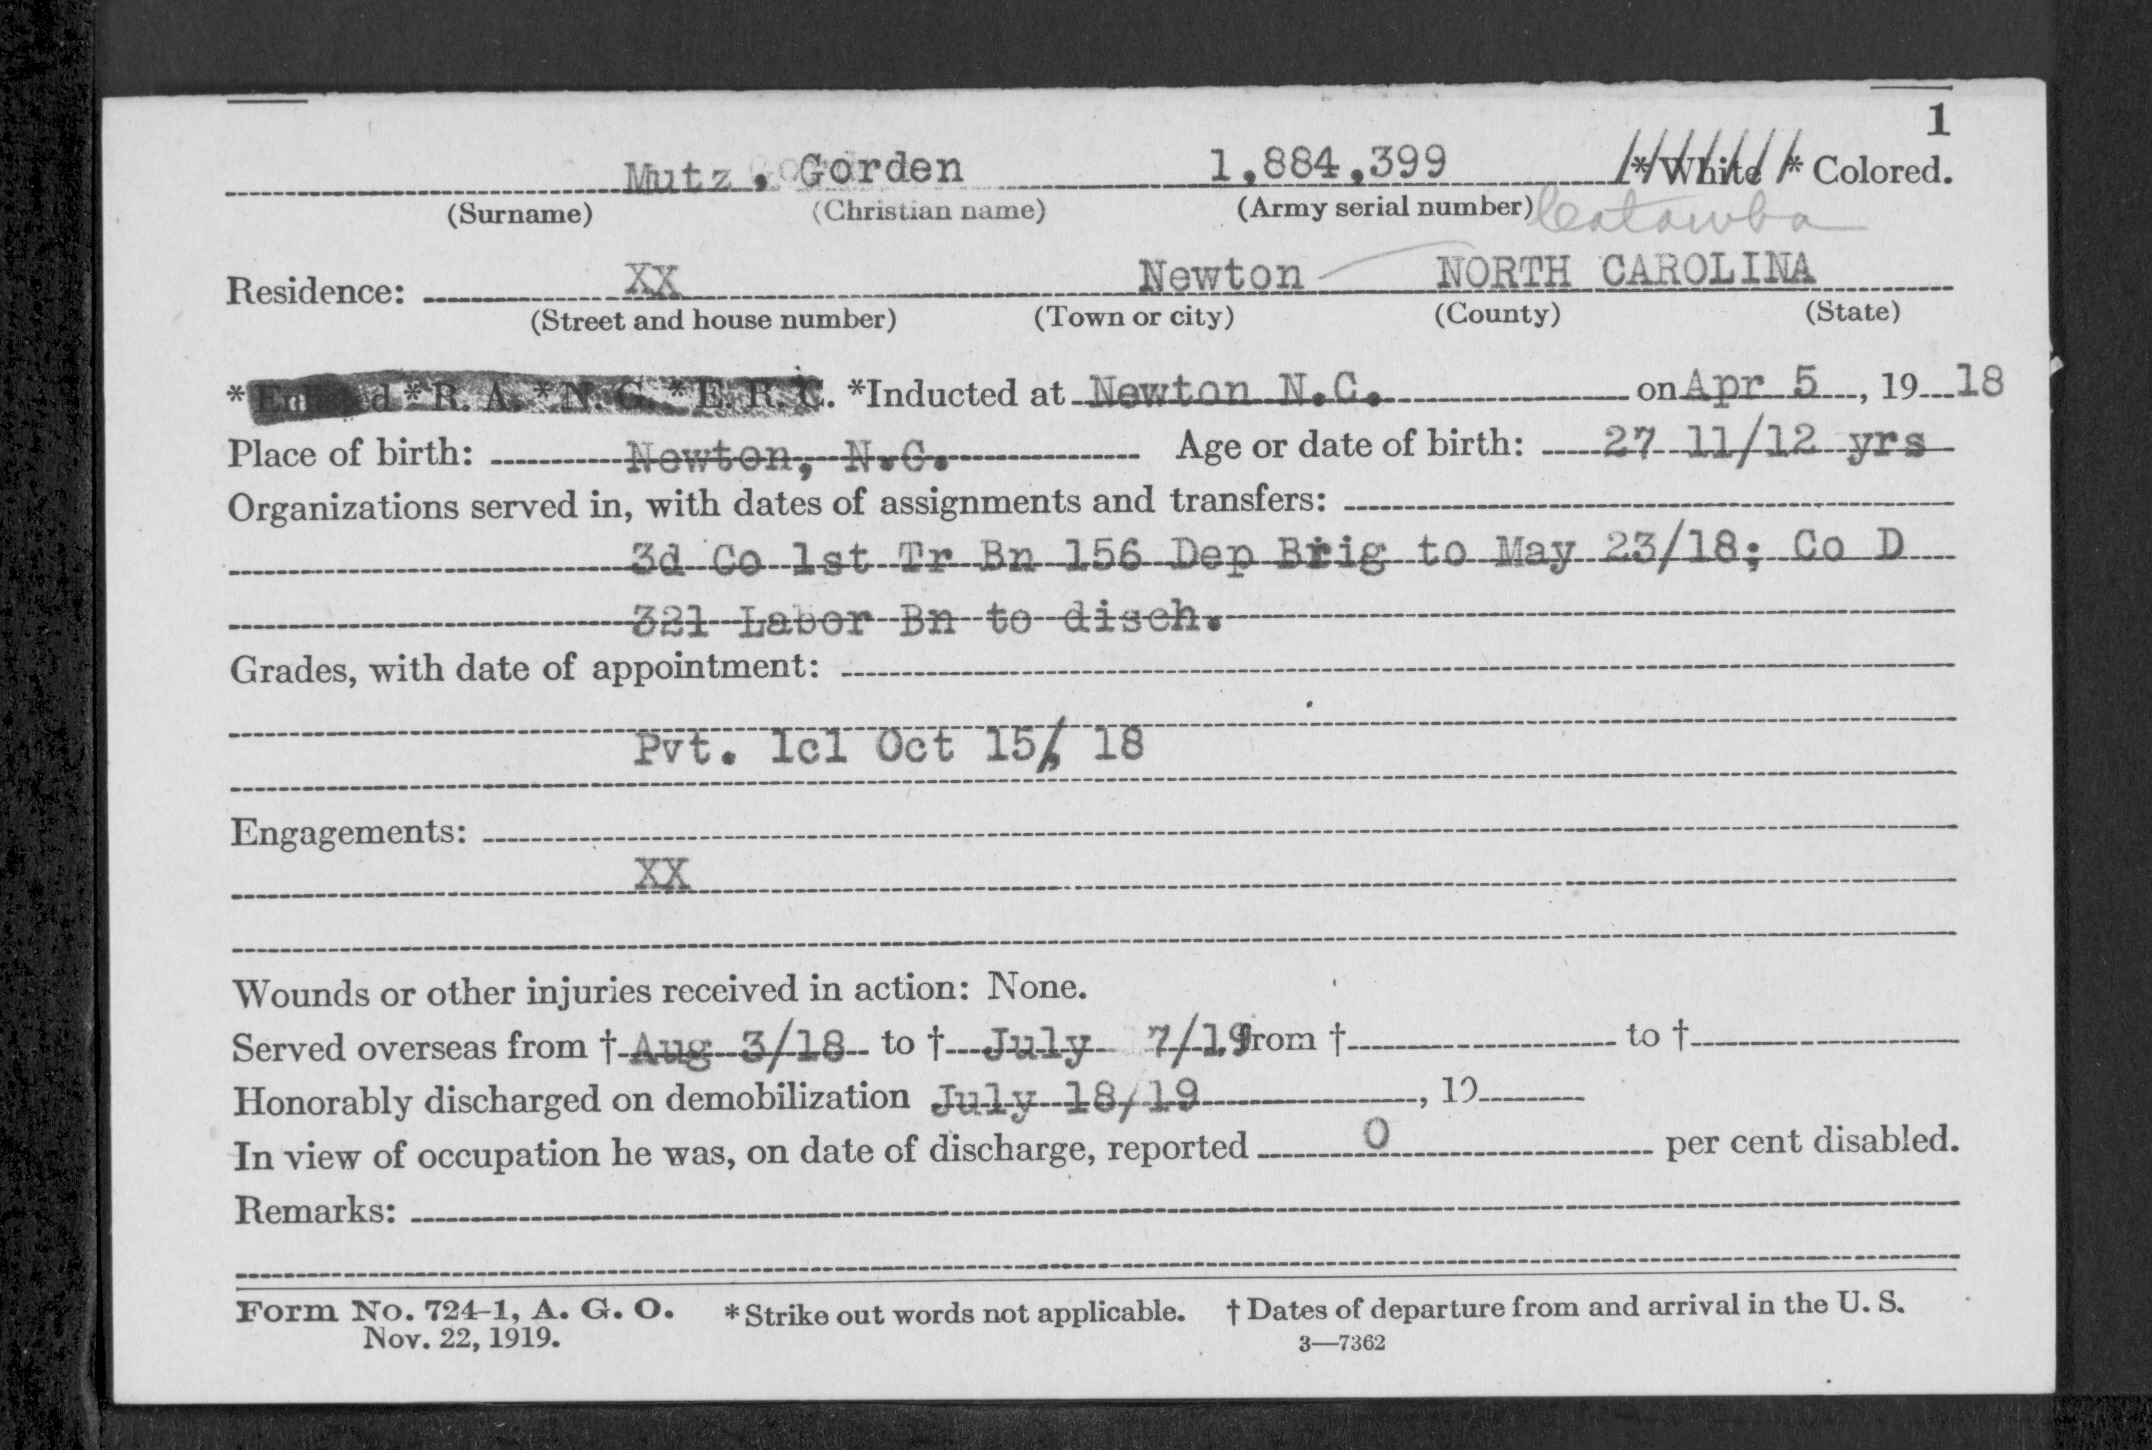 1
Mutz, Gorden 1,884,399 * White * Colored.
(Surname) (Christian name) (Army serial number) Catawba
Residence: XX Newton NORTH CAROLINA
(Street and house number) (Town or city) (County) (State)
* R. A. * N. G. * E. R. C. *Inducted at Newton N.C. on Apr 5, 19 18
Place of birth: Newton, N.C. Age or date of birth: 27 11/12 yrs
Organizations served in, with dates of assignments and transfers:
3d Co 1st Tr Bn 156 Dep Brig to May 23/18; Co D
321 Labor Bn to disch.
Grades, with date of appointment:
Pvt. 1cl Oct 15/ 18
Engagements:
XX
Wounds or other injuries received in action: None.
Served overseas from † Aug 3/18 to † July 7/19 from † to †
Honorably discharged on demobilization July 18/19, 19
In view of occupation he was, on date of discharge, reported 0 per cent disabled.
Remarks:
Form No. 724-1, A. G. O. * Strike out words not applicable. † Dates of departure from and arrival in the U. S.
Nov. 22, 1919. 3—7362